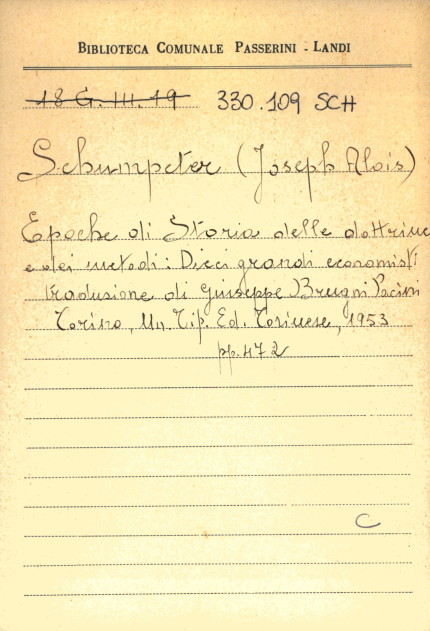 BIBLIOTECA COMUNALE PASSERINI - LANDI
18 G. III. 19 330.109 SCH
Schumpeter (Joseph Alois)
Epoche di Storia delle dottrine
e dei metodi: Dieci grandi economisti
traduzione di Giuseppe Brugni Pacini
Torino, Un. Tip. Ed. Torinese, 1953
pp. 472
C